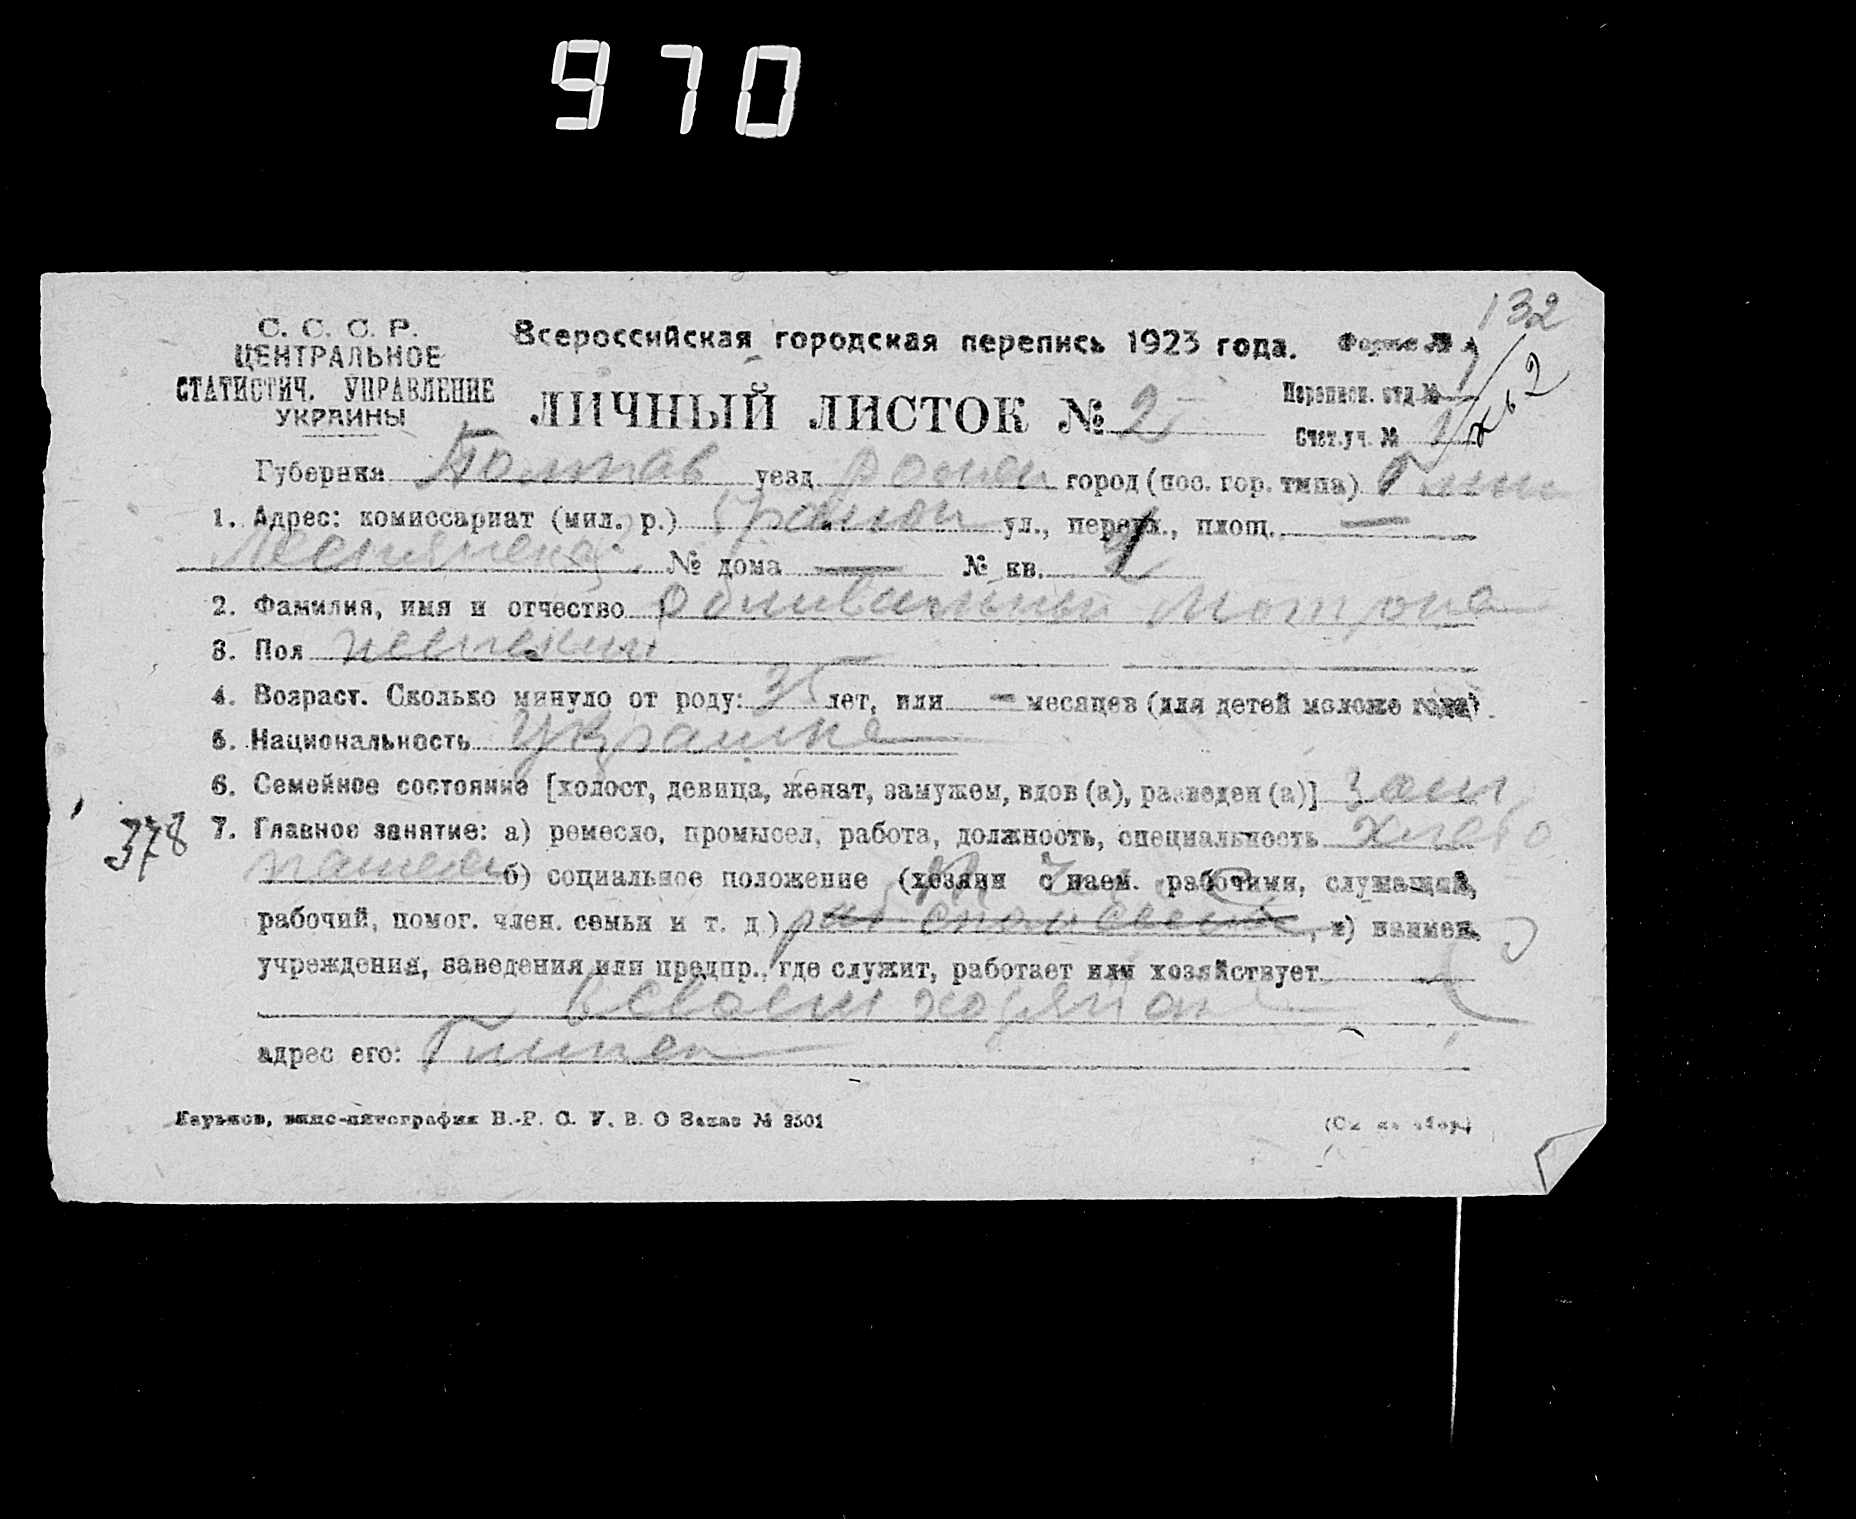 970
132
С. С. С. Р.
ЦЕНТРАЛЬНОЕ
СТАТИСТИЧ. УПРАВЛЕНИЕ
УКРАИНЫ
Всероссийская городская перепись 1923 года. Форма №
ЛИЧНЫЙ ЛИСТОК № 2
Переписн. отд №
Счет.уч. №
Губерния Полтав уезд Ромен город (пос. гор. типа)
1. Адрес: комиссариат (мил. р.) ул., переул., площ. —
№ дома — № кв.
2. Фамилия, имя и отчество Мотрона
3. Пол женский
4. Возраст. Сколько минуло от роду: 35 лет, или — месяцев (для детей моложе года).
5. Национальность Украинка
6. Семейное состояние [холост, девица, женат, замужем, вдов (а), разведен (а)] зам
378
7. Главное занятие: а) ремесло, промысел, работа, должность, специальность хлебо
пашец б) социальное положение (хозяин с наем. рабочими, служащий,
рабочий, помог. член. семьи и т. д.) , в) наимен.
учреждения, заведения или предпр., где служит, работает или хозяйствует
в своем
адрес его:
Харьков, В.-Р. С. У. В. О Заказ № 2501